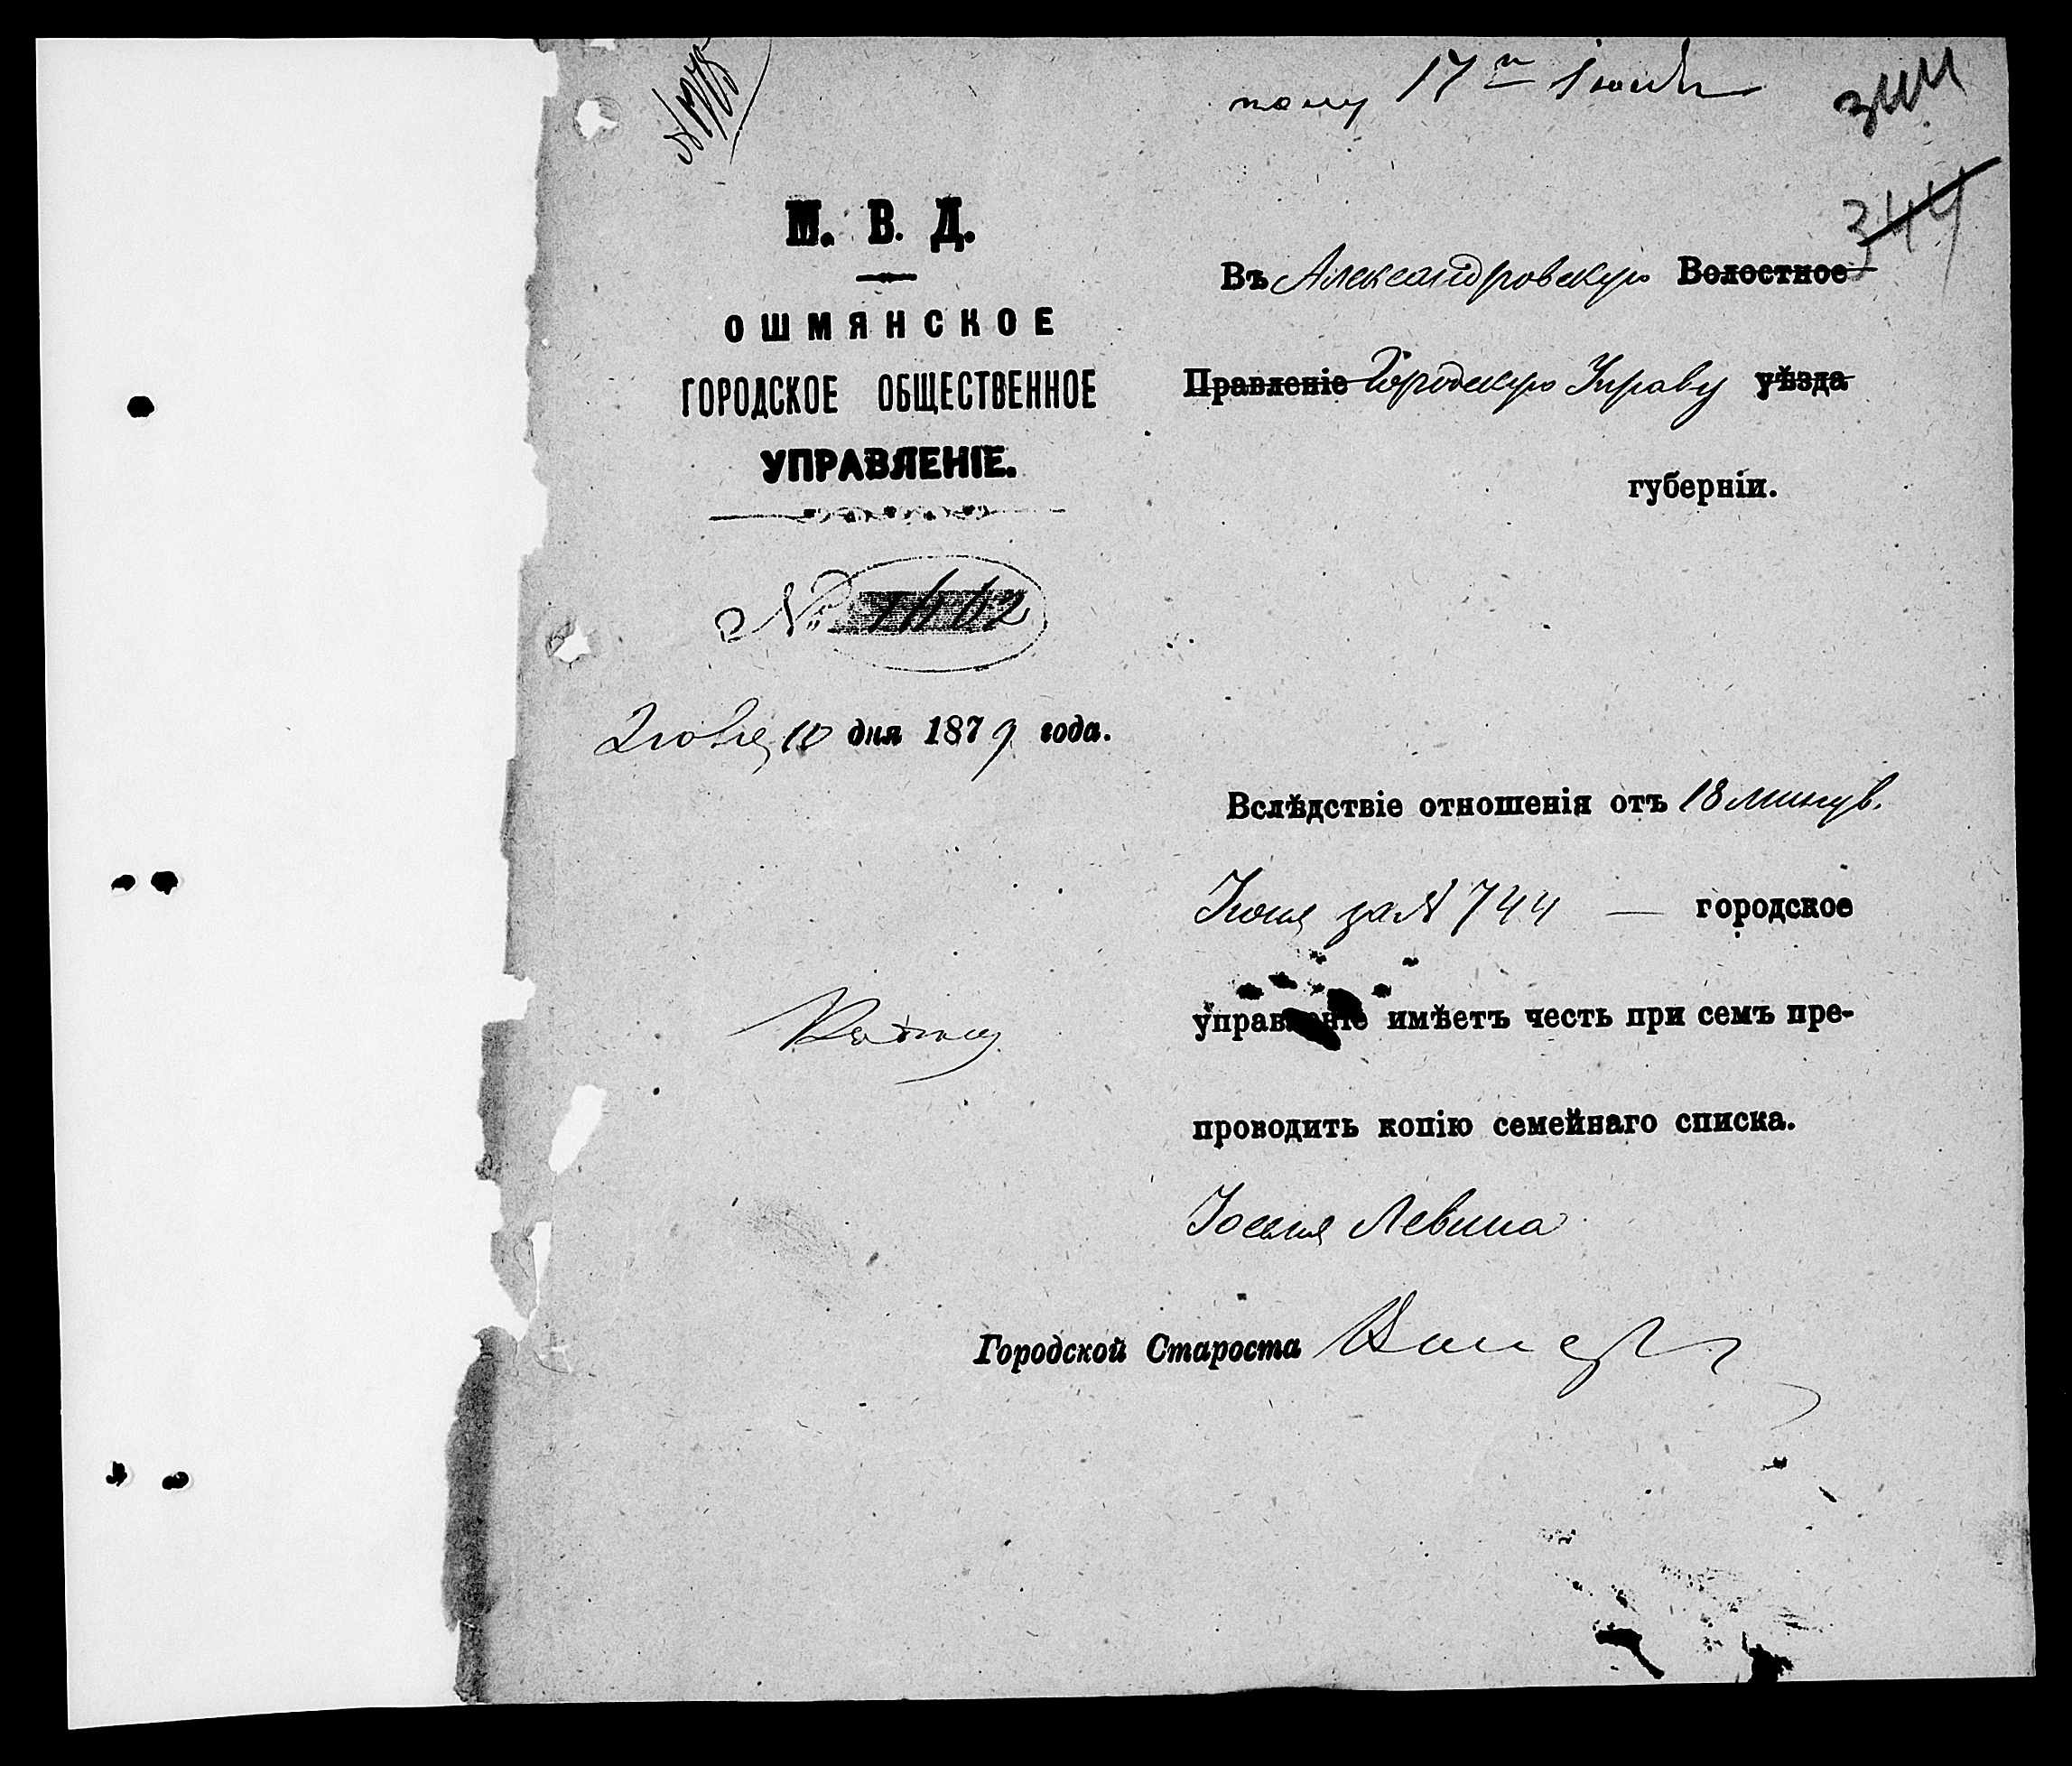 17 Іюля
344
344
М. В. Д.
ОШМЯНСКОЕ
ГОРОДСКОЕ ОБЩЕСТВЕННОЕ
УПРАВЛЕНІЕ.
№
Іюля 10 дня 1879 года.
Въ Александровскую Волостное
Правленіе Городскую Управу уѣзда
губерніи.
Вслѣдствіе отношенія отъ 18 минув.
Іюня за № 744 — городское
управленіе имѣетъ честь при семъ пре-
проводить копію семейнаго списка.
Іоселя Левина
Городской Староста